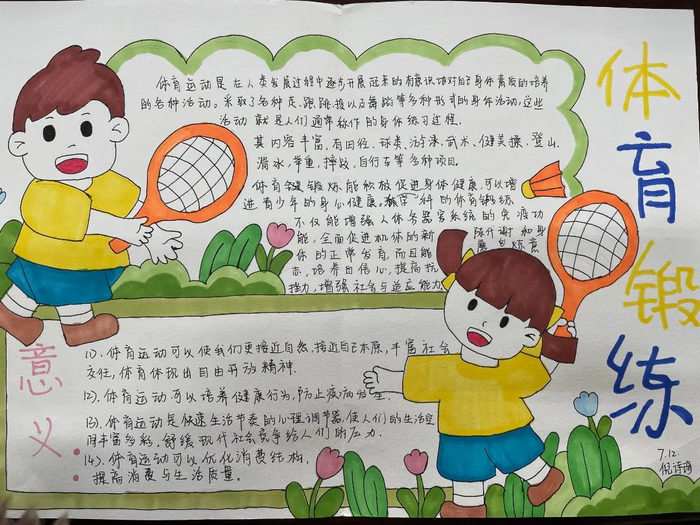 体育锻练
体育运动是在人类发展过程中逐步开展起来的有意识地对自己身体素质的培养
的各种活动。采取了各种走、跑、跳、投以及舞蹈等多种形式的身体活动,这些
活动就是人们通常称作的身体练习过程。
其内容丰富,有田径、球类、游泳、武术、健美操、登山、
滑冰、举重、摔跤、自行车等多种项目。
体育锻炼能够促进身体健康,可以增
进青少年的身心健康。科的体育锻炼
不仅能增强人体各器官系统的
能,全面促进机体的新陈代谢和身
体的正常发育,而且能
志,培养自信心,提高抗
增强社会与适应能力
意义
(1)、体育运动可以使我们更接近自然、接近自己本原,丰富社会
交往,体育体现出自由开放精神.
(2)、体育运动可以培养健康行为,防止疾病
(3)、体育运动是快速生活节奏的心理调节器,使人们的生活空
间丰富多彩,舒缓现代社会竞争给人们的压力.
(4)、体育运动可以优化消费结构.
提高消费与生活质量。
7.12
倪诗